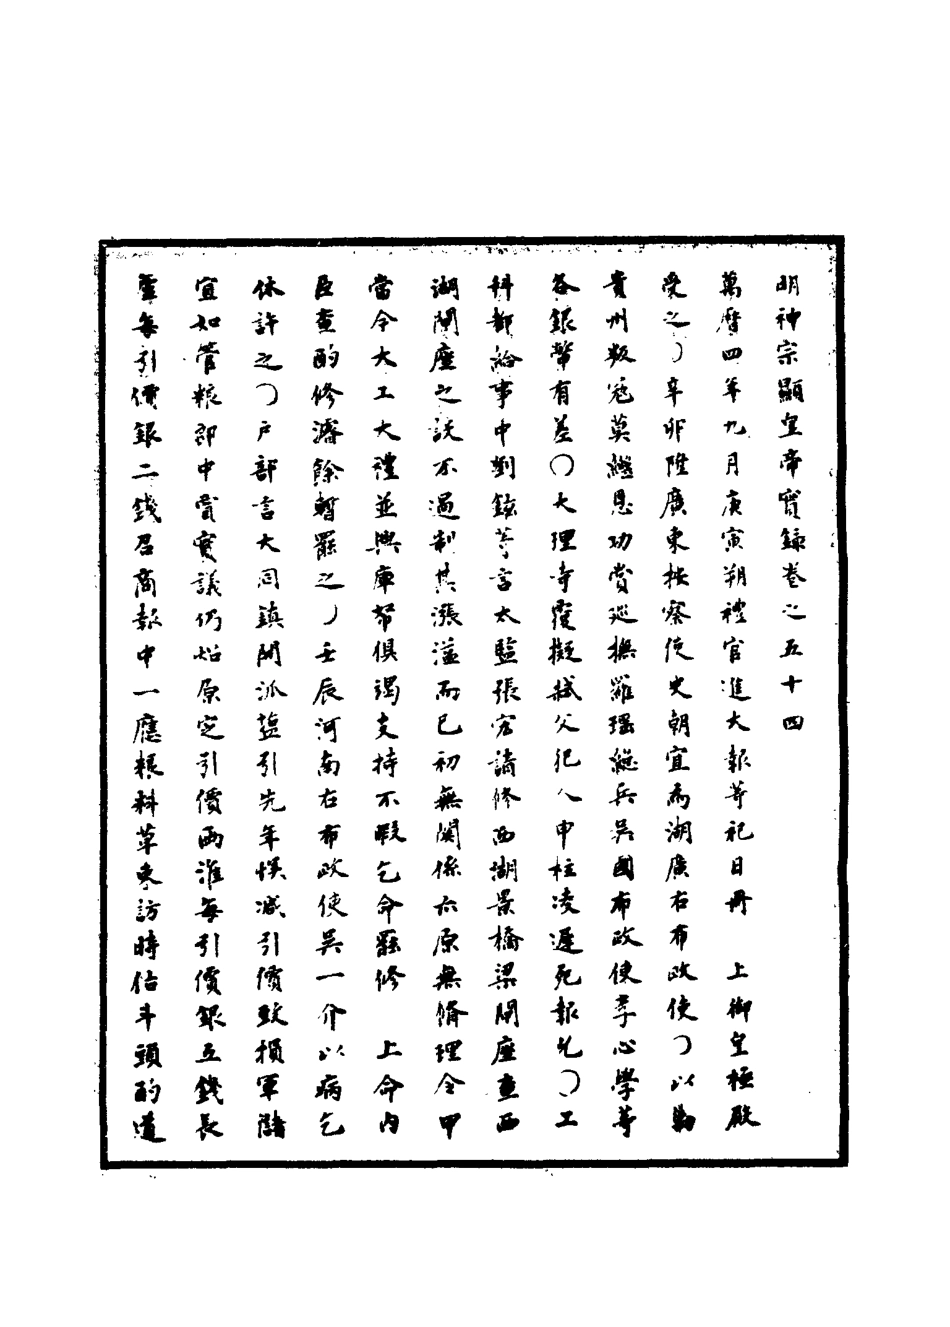 明神宗顯皇帝實錄卷之五十四
萬曆四年九月庚寅朔禮官進大報等祀日冊　上御皇極殿
受之○辛卯陞廣東按察使史朝宜為湖廣右布政使○以勦
貴州叛冦莫繼恩功賞巡撫羅瑶總兵吳國布政使李心學等
各銀幣有差○大理寺覆擬弒父犯人申柱凌遲死報允○工
科都給事中劉鉉等言太監張宏請修西湖景橋梁閘座查西
湖閘座之設不過制其漲溢而已初無関係亦原無脩理令甲
當今大工大禮並興庫帑俱竭支持不暇乞命罷修　上命內
臣查酌修濬餘暫罷之○壬辰河南右布政使吳一介以病乞
休許之○戶部言大同鎮開派塩引先年悞減引價致損軍儲
宜如管粮郎中賞實議仍始原定引價兩淮每引價銀五錢長
蘆每引價銀二錢召商報中一應粮料草束訪時估斗頭酌遠